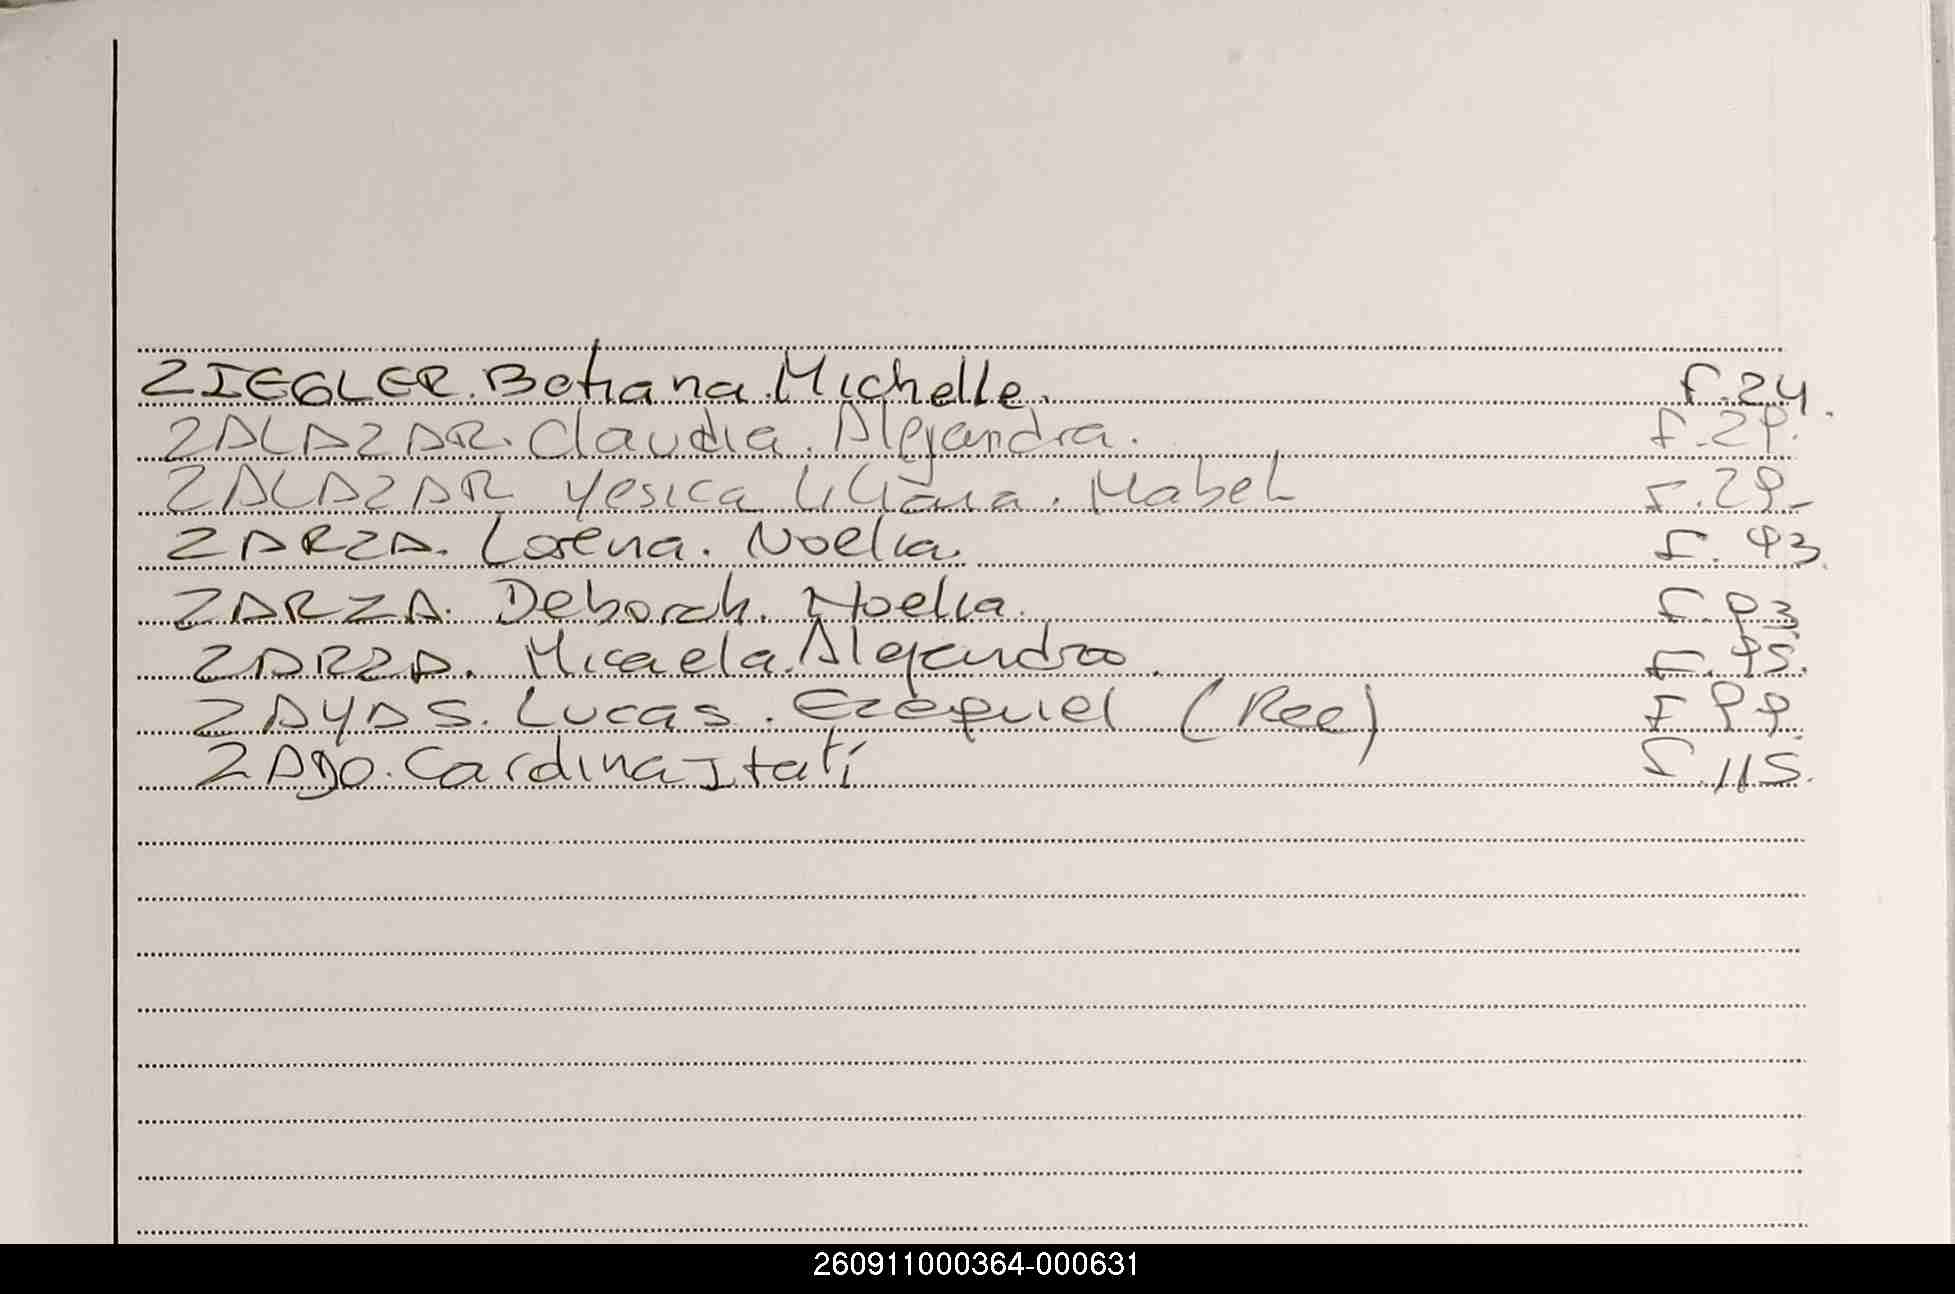 ZIEGLER. Betiana Michelle. F.24.
ZALAZAR. Claudia. Alejandra. F.29.
ZALAZAR Yesica Liliana. Mabel F.29-
ZARZA. Lorena. Noelia. F. 93.
ZARZA. Deborah. Noelia. F. 93
ZARZA. Micaela. Alejandra. F. 95.
ZAYAS. Lucas. Ezequiel (Rec) F 99.
ZADO. Cardina Itatí F.115.
260911000364-000631